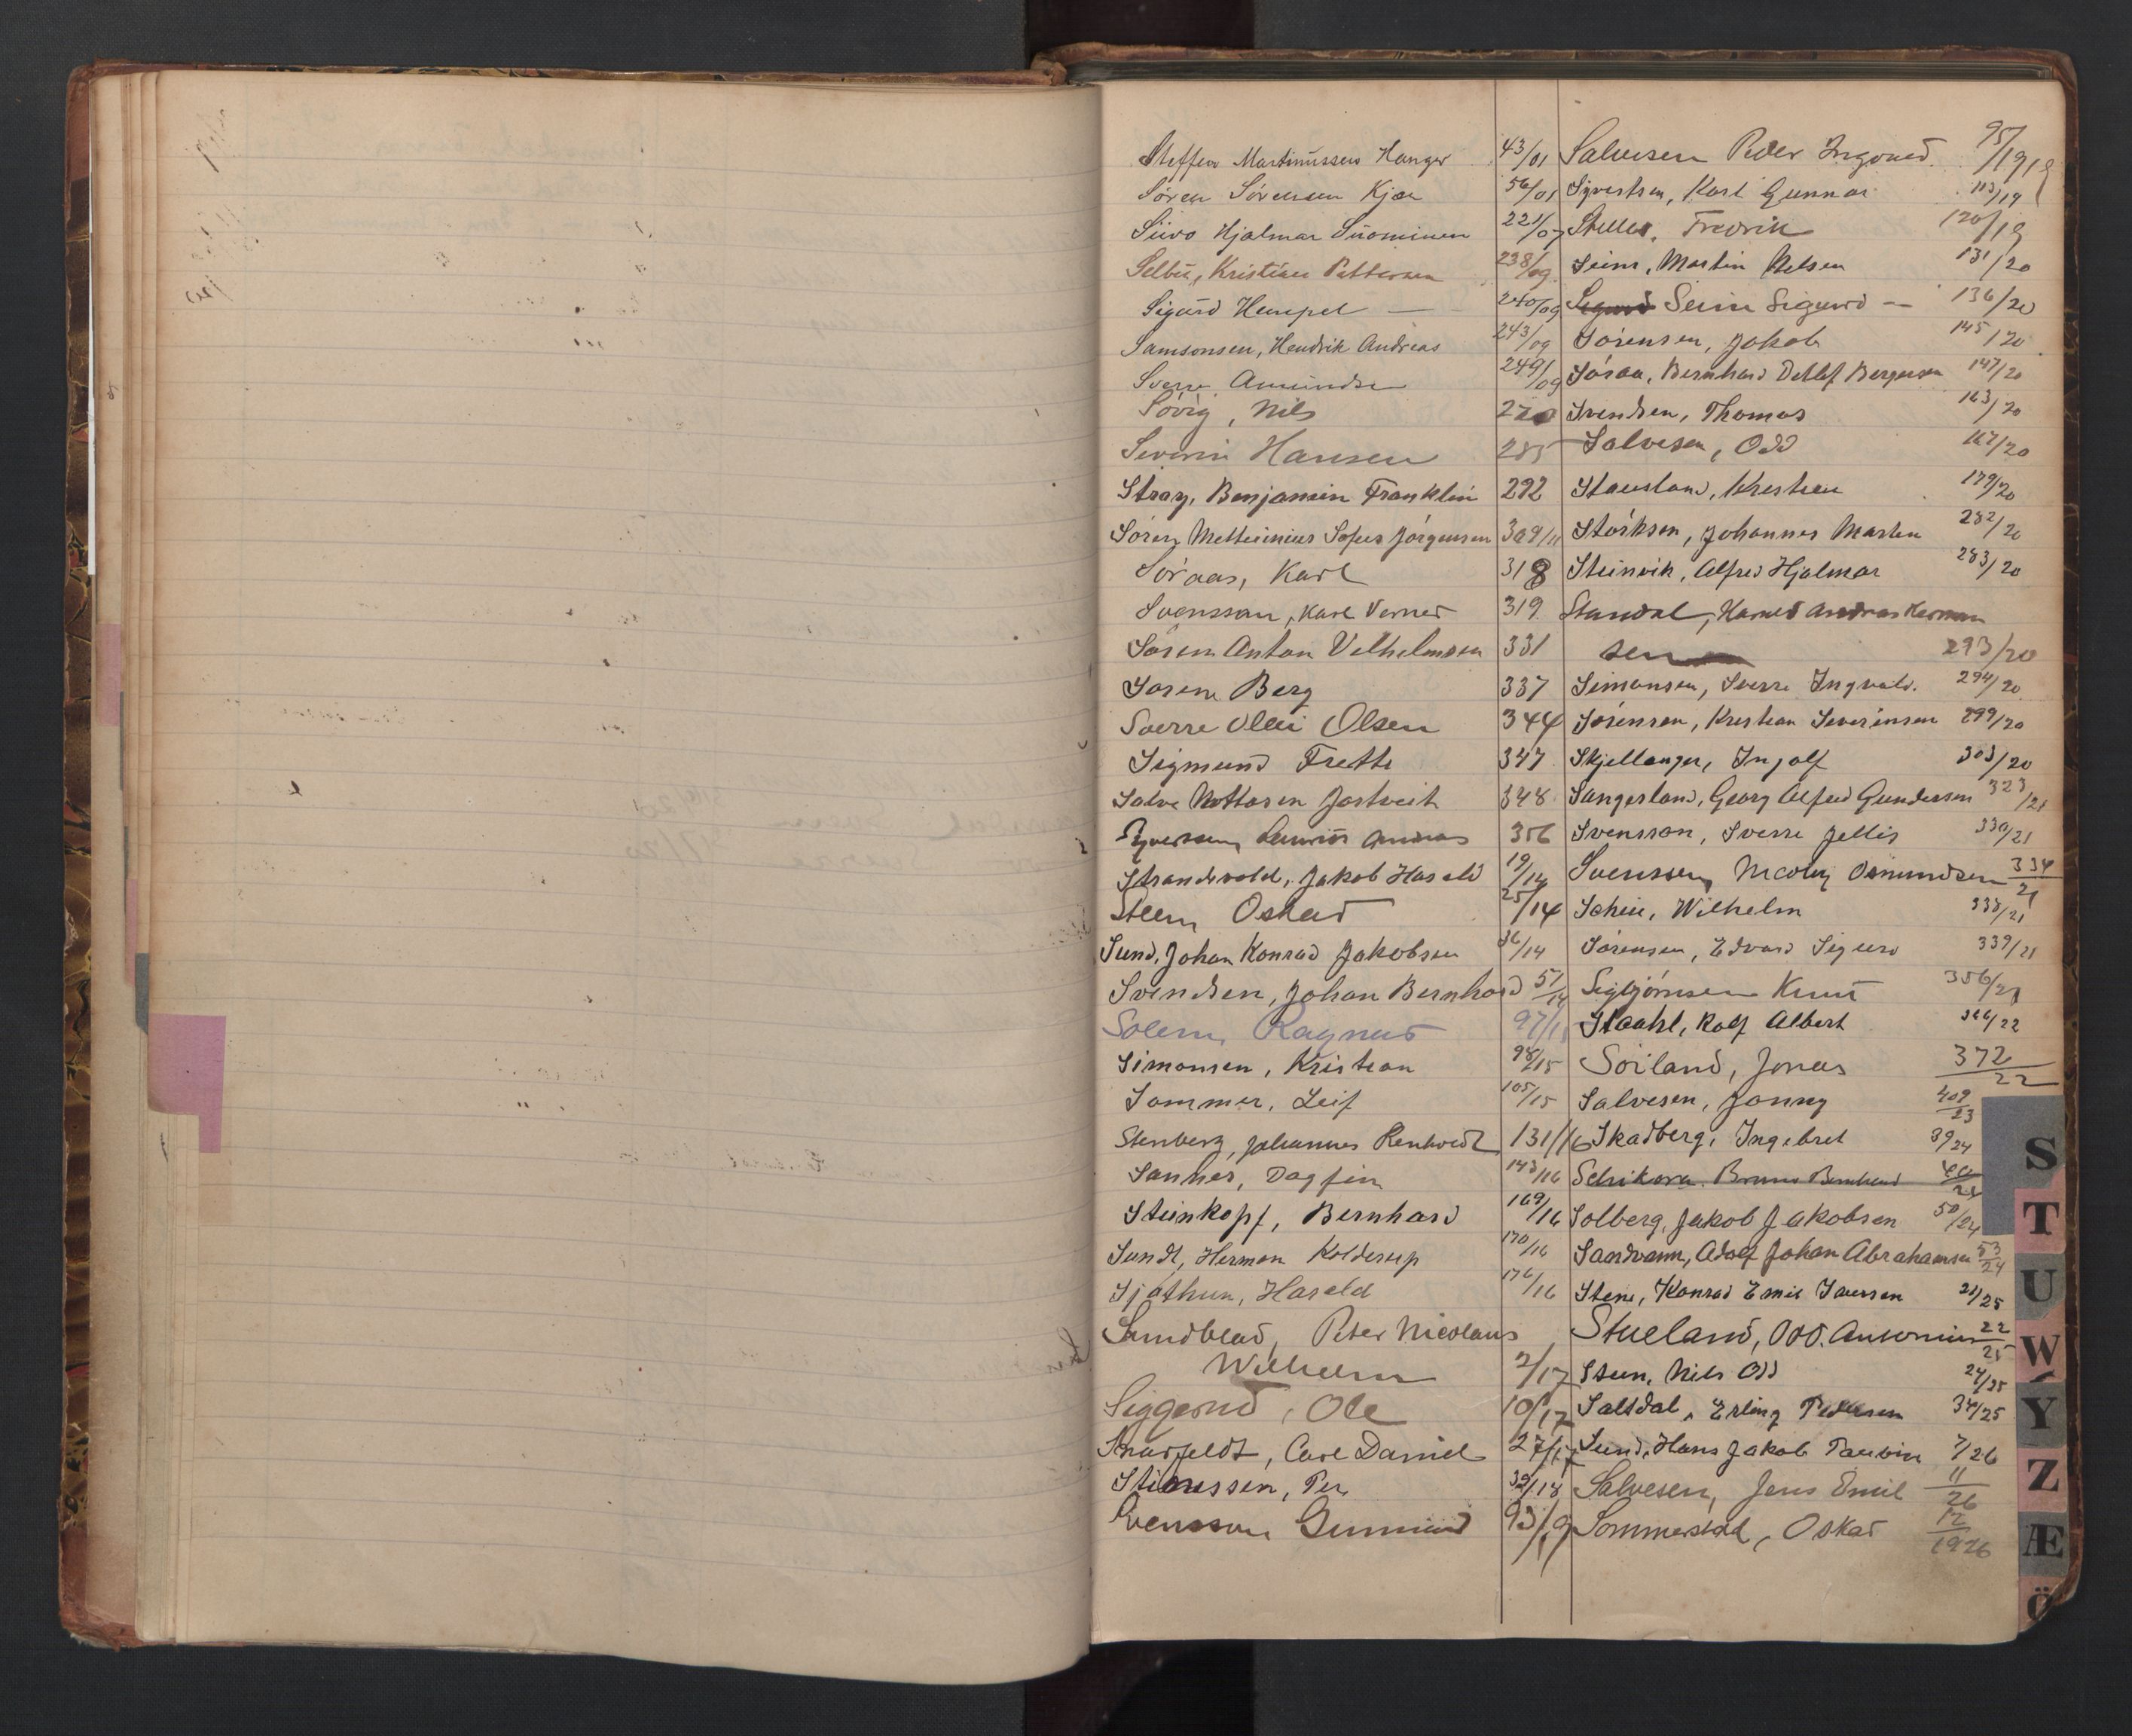 Steffen Martinussen Hanger 43/01
Sören Sörensen Kjær 56/01
Siivo Hjalmar Suominen 221/07
Selbu, Kristian Pettersen 238/09
Sigurd Hempel — 240/09
Samsonsen, Hendrik Andreas 243/09
Sverre Amundsen 249/09
Sövig, Nils
Severin Hansen 285
Stray, Benjamin Franklin 292
Sören Jörgensen 309/11
Söraas, Karl 318
Svensson, Karl Verner 319
Sören Anton Vilhelmsen 331
Sørene Berg 337
Sverre Olai Olsen 344
Sigmund Frette 347
Salve Nottosen Jortveit 348
Andreas 356
Strandvold, Jakob Harald 19/14
Steen Oskar 25/14
Sund, Johan Konrad Jakobsen 36/14
Svendsen, Johan Bernhard 51/14
Solem, Ragnar 97/15
Simonsen, Kristian 98/15
Sommer, Leif 105/15
Stenberg, Johannes 131/16
Sannes, Dagfin 143/16
Steinkopf, Bernhard 169/16
Sundt, Herman Kolderup 170/16
Sjøthun, Harald 176/16
Sundblad, Peter Nicolaus
Wilhelm 2/17
Siggerud, Ole 10/17
Snarfeldt, Carl Daniel 27/17
Stianssen, Per 39/18
Svensson Gunnar 93/19
Salvesen Peder Ingvard. 95/1919
Syvertsen, Karl Gunnar 113/19
Steller, Fredrik 120/19
Seim, Martin Nilsen 131/20
Sigurd Seim Sigurd — 136/20
Sørensen, Jakob 145/20
Søraa, Bernhard Detlef Bergersen 147/20
Svendsen, Thomas 163/20
Salvesen, Odd 167/20
Stausland, Kristian 179/20
Størksen, Johannes Martin 282/20
Steinvik, Alfred Hjalmar 283/20
Standal, Harald Andreas Herman
sen 293/20
Simonsen, Sverre Ingvald. 294/20
Sørensen, Kristian Severinsen 299/20
Skjellanger, Ingolf 303/20
Sangesland, Georg Alfred Gundersen 323/21
Svensson, Sverre Jellis 330/21
Svenssen, Nicolay Osmundsen 334/21
Schie, Wilhelm 338/21
Sørensen, Edvard Sigurd 339/21
Sigbjörnsen Knut 356/21
Staahl, Rolf Albert 366/22
Soiland, Jonas 372/22
Salvesen, Jonny 409/23
Skadberg, Ingebret 39/24
Schikora. Bruno Bernhard
Solberg, Jakob Jakobsen 50/24
Sandvann, Adolf Johan Abrahamsen 53/24
Stene, Konrad Emil Iversen 21/25
Stueland, Odd. Antonius 22/25
Steen, Nils Odd 24/25
Saltdal, Erling Pedersen 34/25
Sund, Hans Jakob 7/26
Salvesen, Jens Emil 11/26
Sommerstad, Oskar 12/1926
S
T
U
W
Y
Z
Æ
Ö